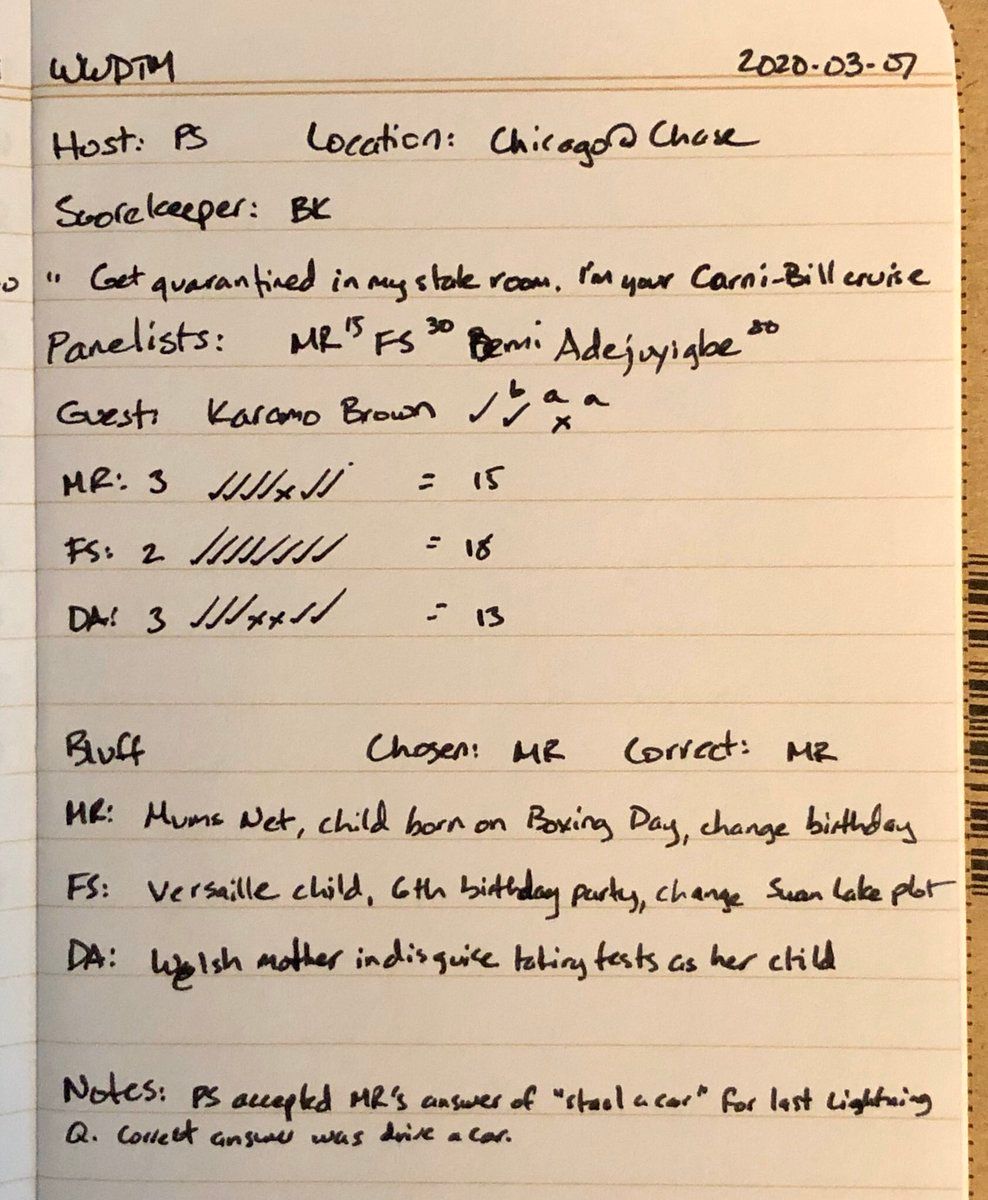 WWDTM 2020-03-07
Host: PS Location: Chicago @ Chase
Scorekeeper: BK
" Get quarantined in my state room. I'm your Carni-Bill cruise
Panelists: MR 15 FS 30 Demi Adejuyigbe
Guest: Karamo Brown ✓ ✓ b a x a
MR: 3 ✓✓✓✓x✓✓ = 15
FS: 2 ✓✓✓✓✓✓✓✓ = 18
DA: 3 ✓✓✓xx✓✓ = 13
Bluff Chosen: MR Correct: MR
MR: Mums Net, child born on Boxing Day, change birthday
FS: Versaille child, 6th birthday party, change Swan Lake plot
DA: Welsh mother in disguise taking tests as her child
Notes: PS accepted MR's answer of "steal a car" for last Lightning
Q. Correct answer was drive a car.